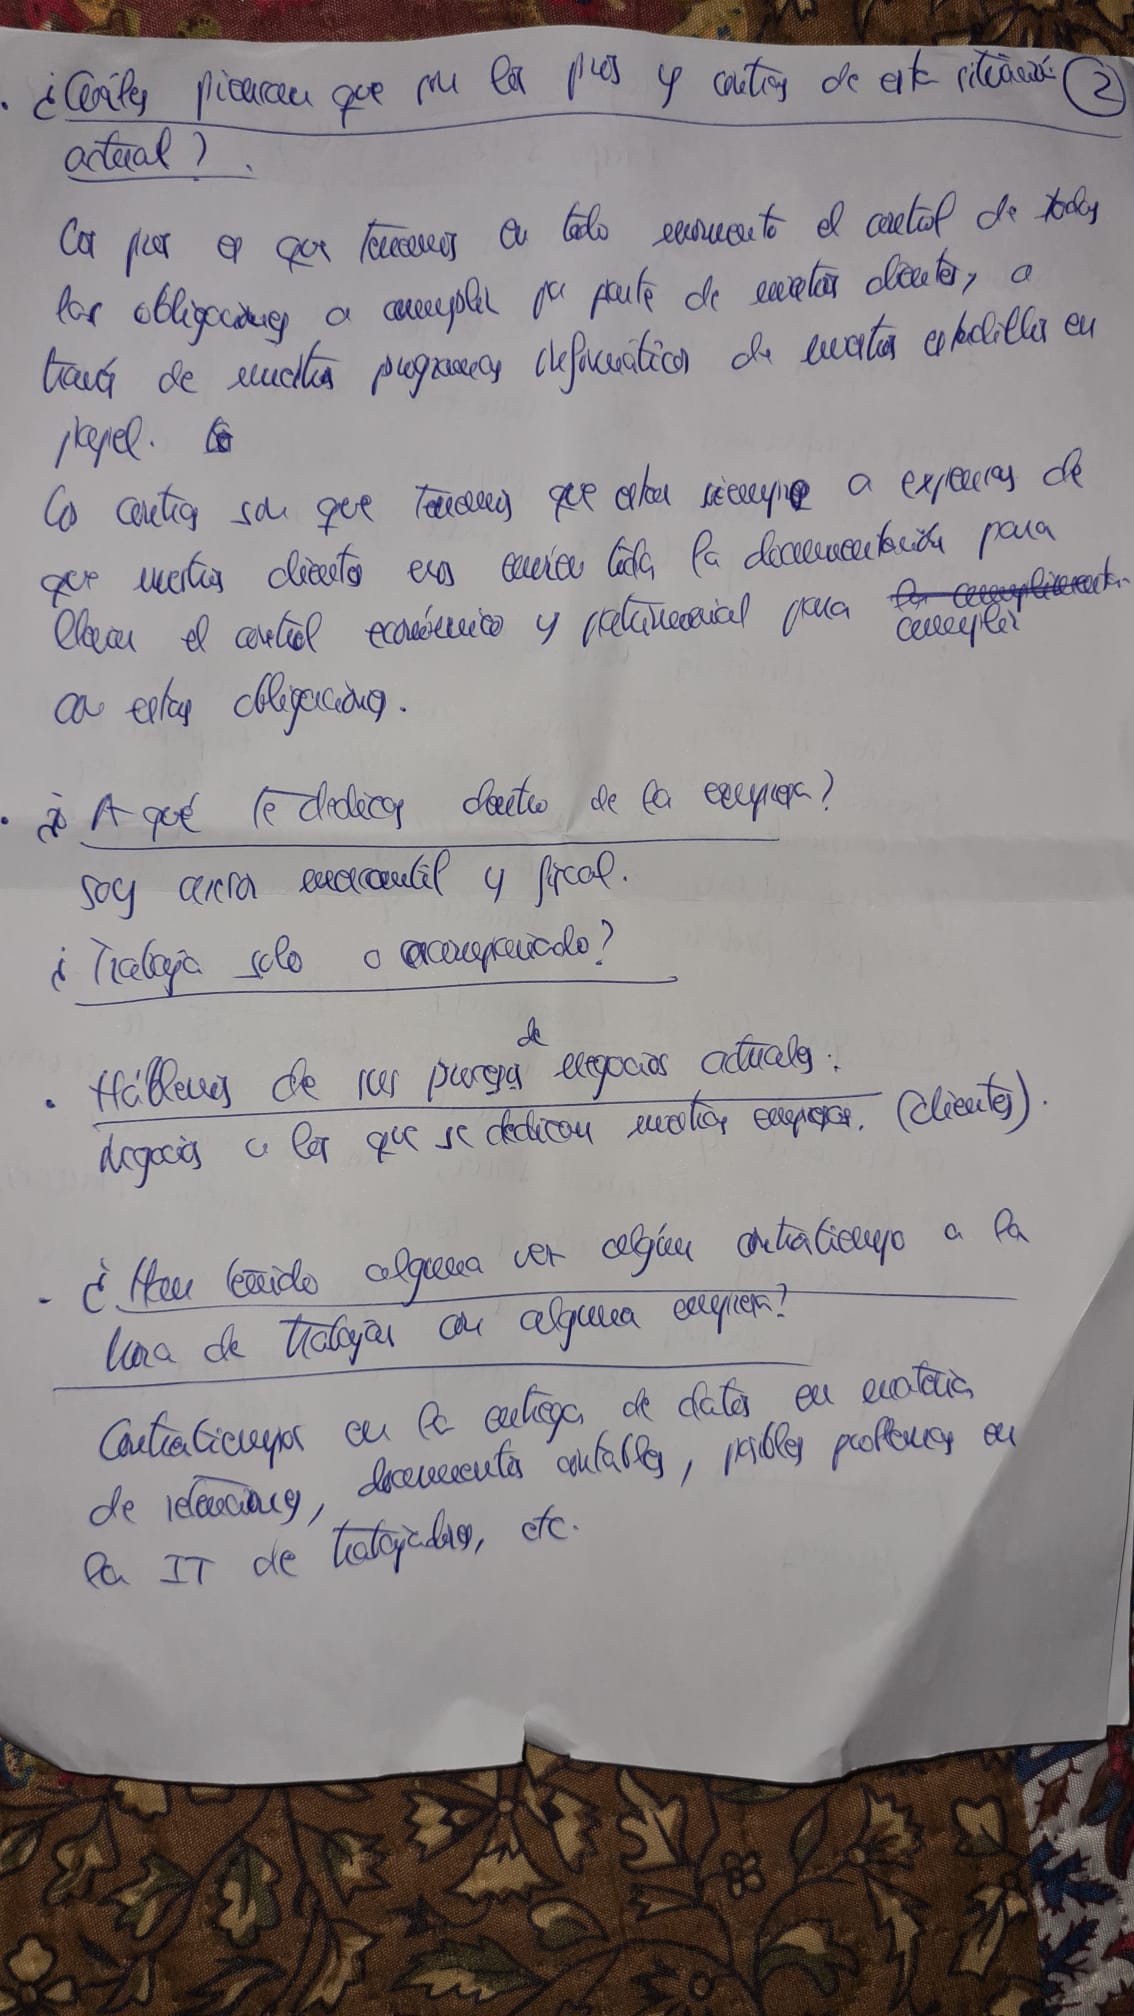 ¿Cuáles piensan que son los pros y contras de esta situación ②
actual?
Los pros es que tenemos en todo momento el control de todas
las obligaciones a cumplir por parte de nuestros clientes, a
través de nuestros programas informáticos de nuestras en
papel.
Los contras son que tenemos que estar siempre a expensas de
que nuestros clientes nos envien toda la documentación para
llevar el control económico y patrimonial para cumplir
con estas obligaciones.
¿A qué te dedicas dentro de la empresa?
soy asesor mercantil y fiscal.
¿Trabaja solo o acompañado?
Háblenos de sus de negocios actuales:
Negocios a los que se dedican nuestras empresas. (clientes).
¿Han tenido alguna vez algún contratiempo a la
hora de trabajar con alguna empresa?
Contratiempos en la entrega de datos en materia
de retenciones, documentos contables, posibles problemas en
la IT de trabajadores, etc.